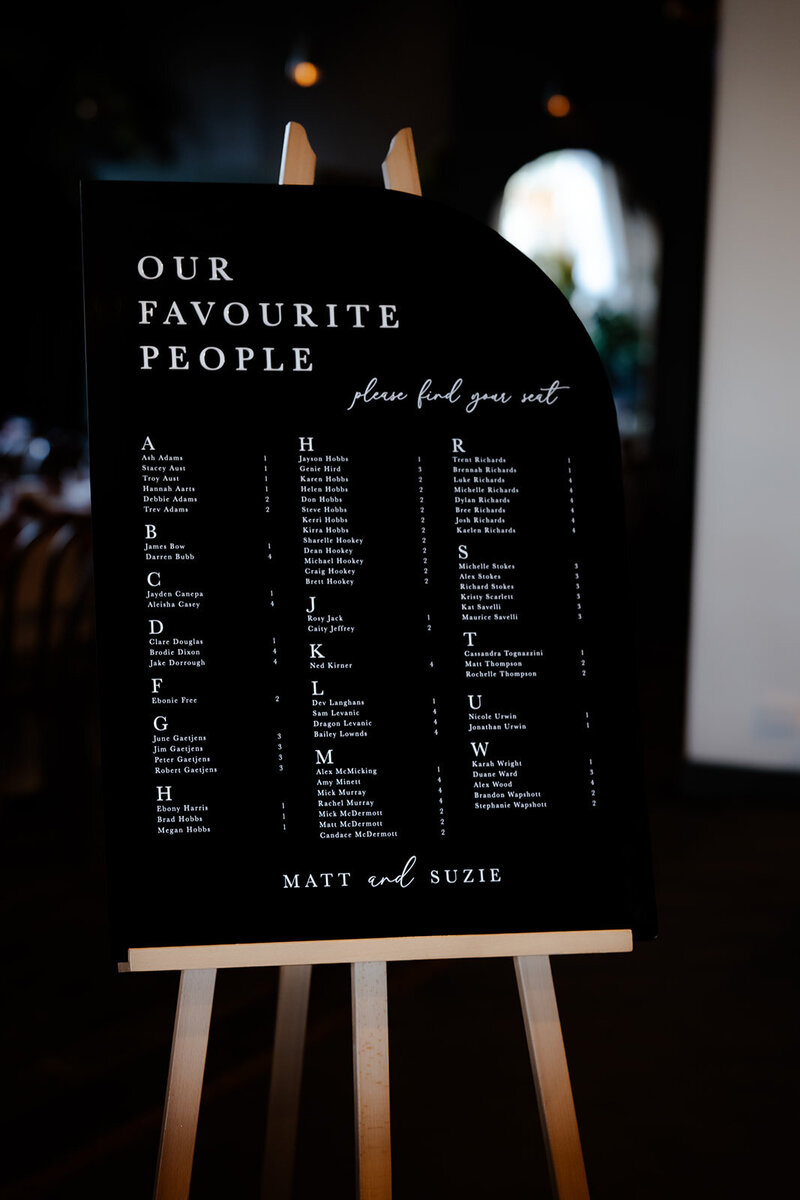 OUR
FAVOURITE
PEOPLE
please find your seat
A
Ash Adams 1
Stacey Aust 1
Troy Aust 1
Hannah Aarts 1
Debbie Adams 2
Trev Adams 2
B
James Bow 1
Darren Bubb 4
C
Jayden Canepa 1
Aleisha Casey 4
D
Clare Douglas 1
Brodie Dixon 4
Jake Dorrough 4
F
Ebonie Free 2
G
June Gaetjens 3
Jim Gaetjens 3
Peter Gaetjens 3
Robert Gaetjens 3
H
Ebony Harris 1
Brad Hobbs 1
Megan Hobbs 1
H
Jayson Hobbs 1
Genie Hird 3
Karen Hobbs 2
Helen Hobbs 2
Don Hobbs 2
Steve Hobbs 2
Kerri Hobbs 2
Kirra Hobbs 2
Sharelle Hookey 2
Dean Hookey 2
Michael Hookey 2
Craig Hookey 2
Brett Hookey 2
J
Rosy Jack 1
Caity Jeffrey 2
K
Ned Kirner 4
L
Dev Langhans 1
Sam Levanic 4
Dragon Levanic 4
Bailey Lownds 4
M
Alex McMicking 1
Amy Minett 4
Mick Murray 4
Rachel Murray 4
Mick McDermott 2
Matt McDermott 2
Candace McDermott 2
R
Trent Richards 1
Brennah Richards 1
Luke Richards 4
Michelle Richards 4
Dylan Richards 4
Bree Richards 4
Josh Richards 4
Kaelen Richards 4
S
Michelle Stokes 3
Alex Stokes 3
Richard Stokes 3
Kristy Scarlett 3
Kat Savelli 3
Maurice Savelli 3
T
Cassandra Tognazzini 1
Matt Thompson 2
Rochelle Thompson 2
U
Nicole Urwin 1
Jonathan Urwin 1
W
Karah Wright 1
Duane Ward 3
Alex Wood 4
Brandon Wapshott 2
Stephanie Wapshott 2
MATT and SUZIE